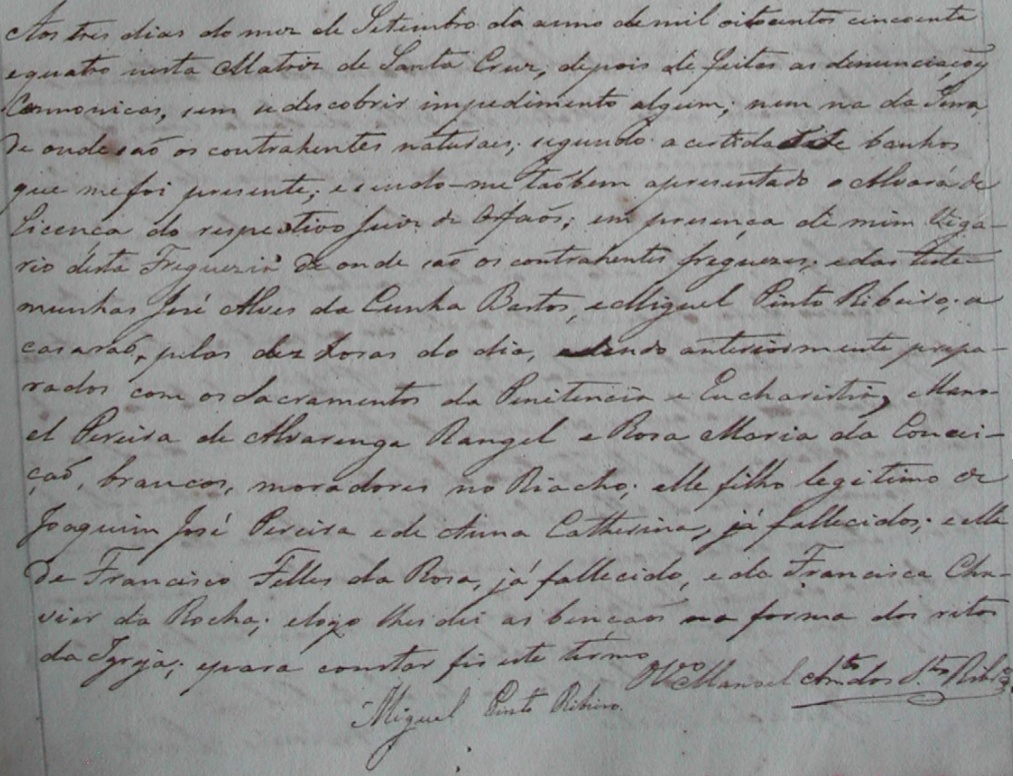 Aos tres dias do mez de Setembro do anno de mil oitocentos cincoenta
e quatro nesta Matriz de Santa Cruz, depois de feitas as denunciaçoẽs
Canonicas, sem se descobrir impedimento algum, nem na da Serra,
de onde saõ os contrahentes naturaes, segundo a certidaõ de banhos
que me foi presente; e sendo-me taõbem apresentado o Alvará de
Licenca do respectivo Juiz de Orfaõs; em presença de mim Viga-
rio desta Freguezia de onde saõ os contrahentes freguezes, e das teste-
munhas José Alves da Cunha Bastos, e Miguel Pinto Ribeiro, a
casaraõ, pelas dez horas do dia, anteriormente prepa-
rados com os Sacramentos da Penitencia e Eucharistia, Mano-
el Pereira de Alvarenga Rangel e Rosa Maria da Concei-
çaõ, brancos, moradores no Riacho; elle filho legitimo de
Joaquim José Pereira e de Anna Catherina, já fallecidos; e ella
de Francisco Telles da Rosa, já fallecido, e da Francisca Cha-
vier da Rocha; e logo lhes dei as bençaõs na forma dos ritos
da Igreja; e para constar fis este termo
O Vgro Manoel Anto dos Stos Ribro
Miguel Pinto Ribeiro.